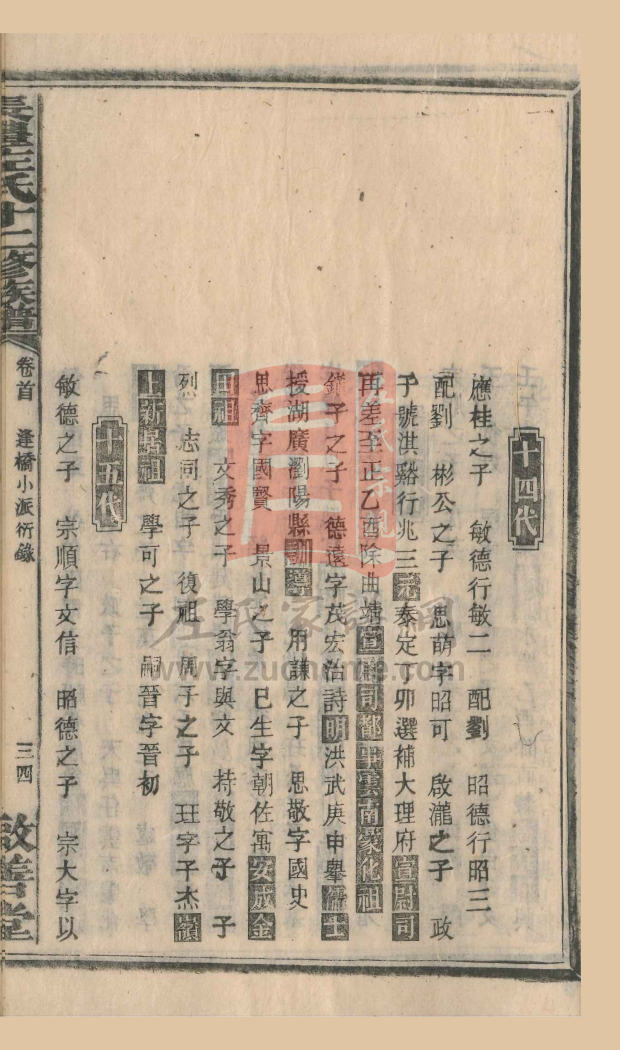 十四代
應桂之子　敏德行敏二　配劉　昭德行昭三
配劉　彬公之子　思萌字昭可　啟瀧之子　政
子號洪谿行兆三元泰定丁卯選補大理府宣尉司
再差至正乙酉除曲靖宣尉司都事雲南篆化祖
之子　德遠字茂宏治詩明洪武庚申舉儒士
授湖廣瀏陽縣訓導　用謙之子　思敬字國史
思齊字國賢　景山之子　巳生字朝佐寓安成金
田祖　文秀之子　學翁字與文　持敬之子　子
烈　志同之子　復祖　周子之子　玨字子杰嶺
上新居祖　學可之子　嗣晉字晉初
十五代
敏德之子　宗順字文信　昭德之子　宗大字以
長醴左氏十二修族譜　卷首　逢橋小派衍錄　三四　敬善堂
左氏家譜網
www.zuoname.com